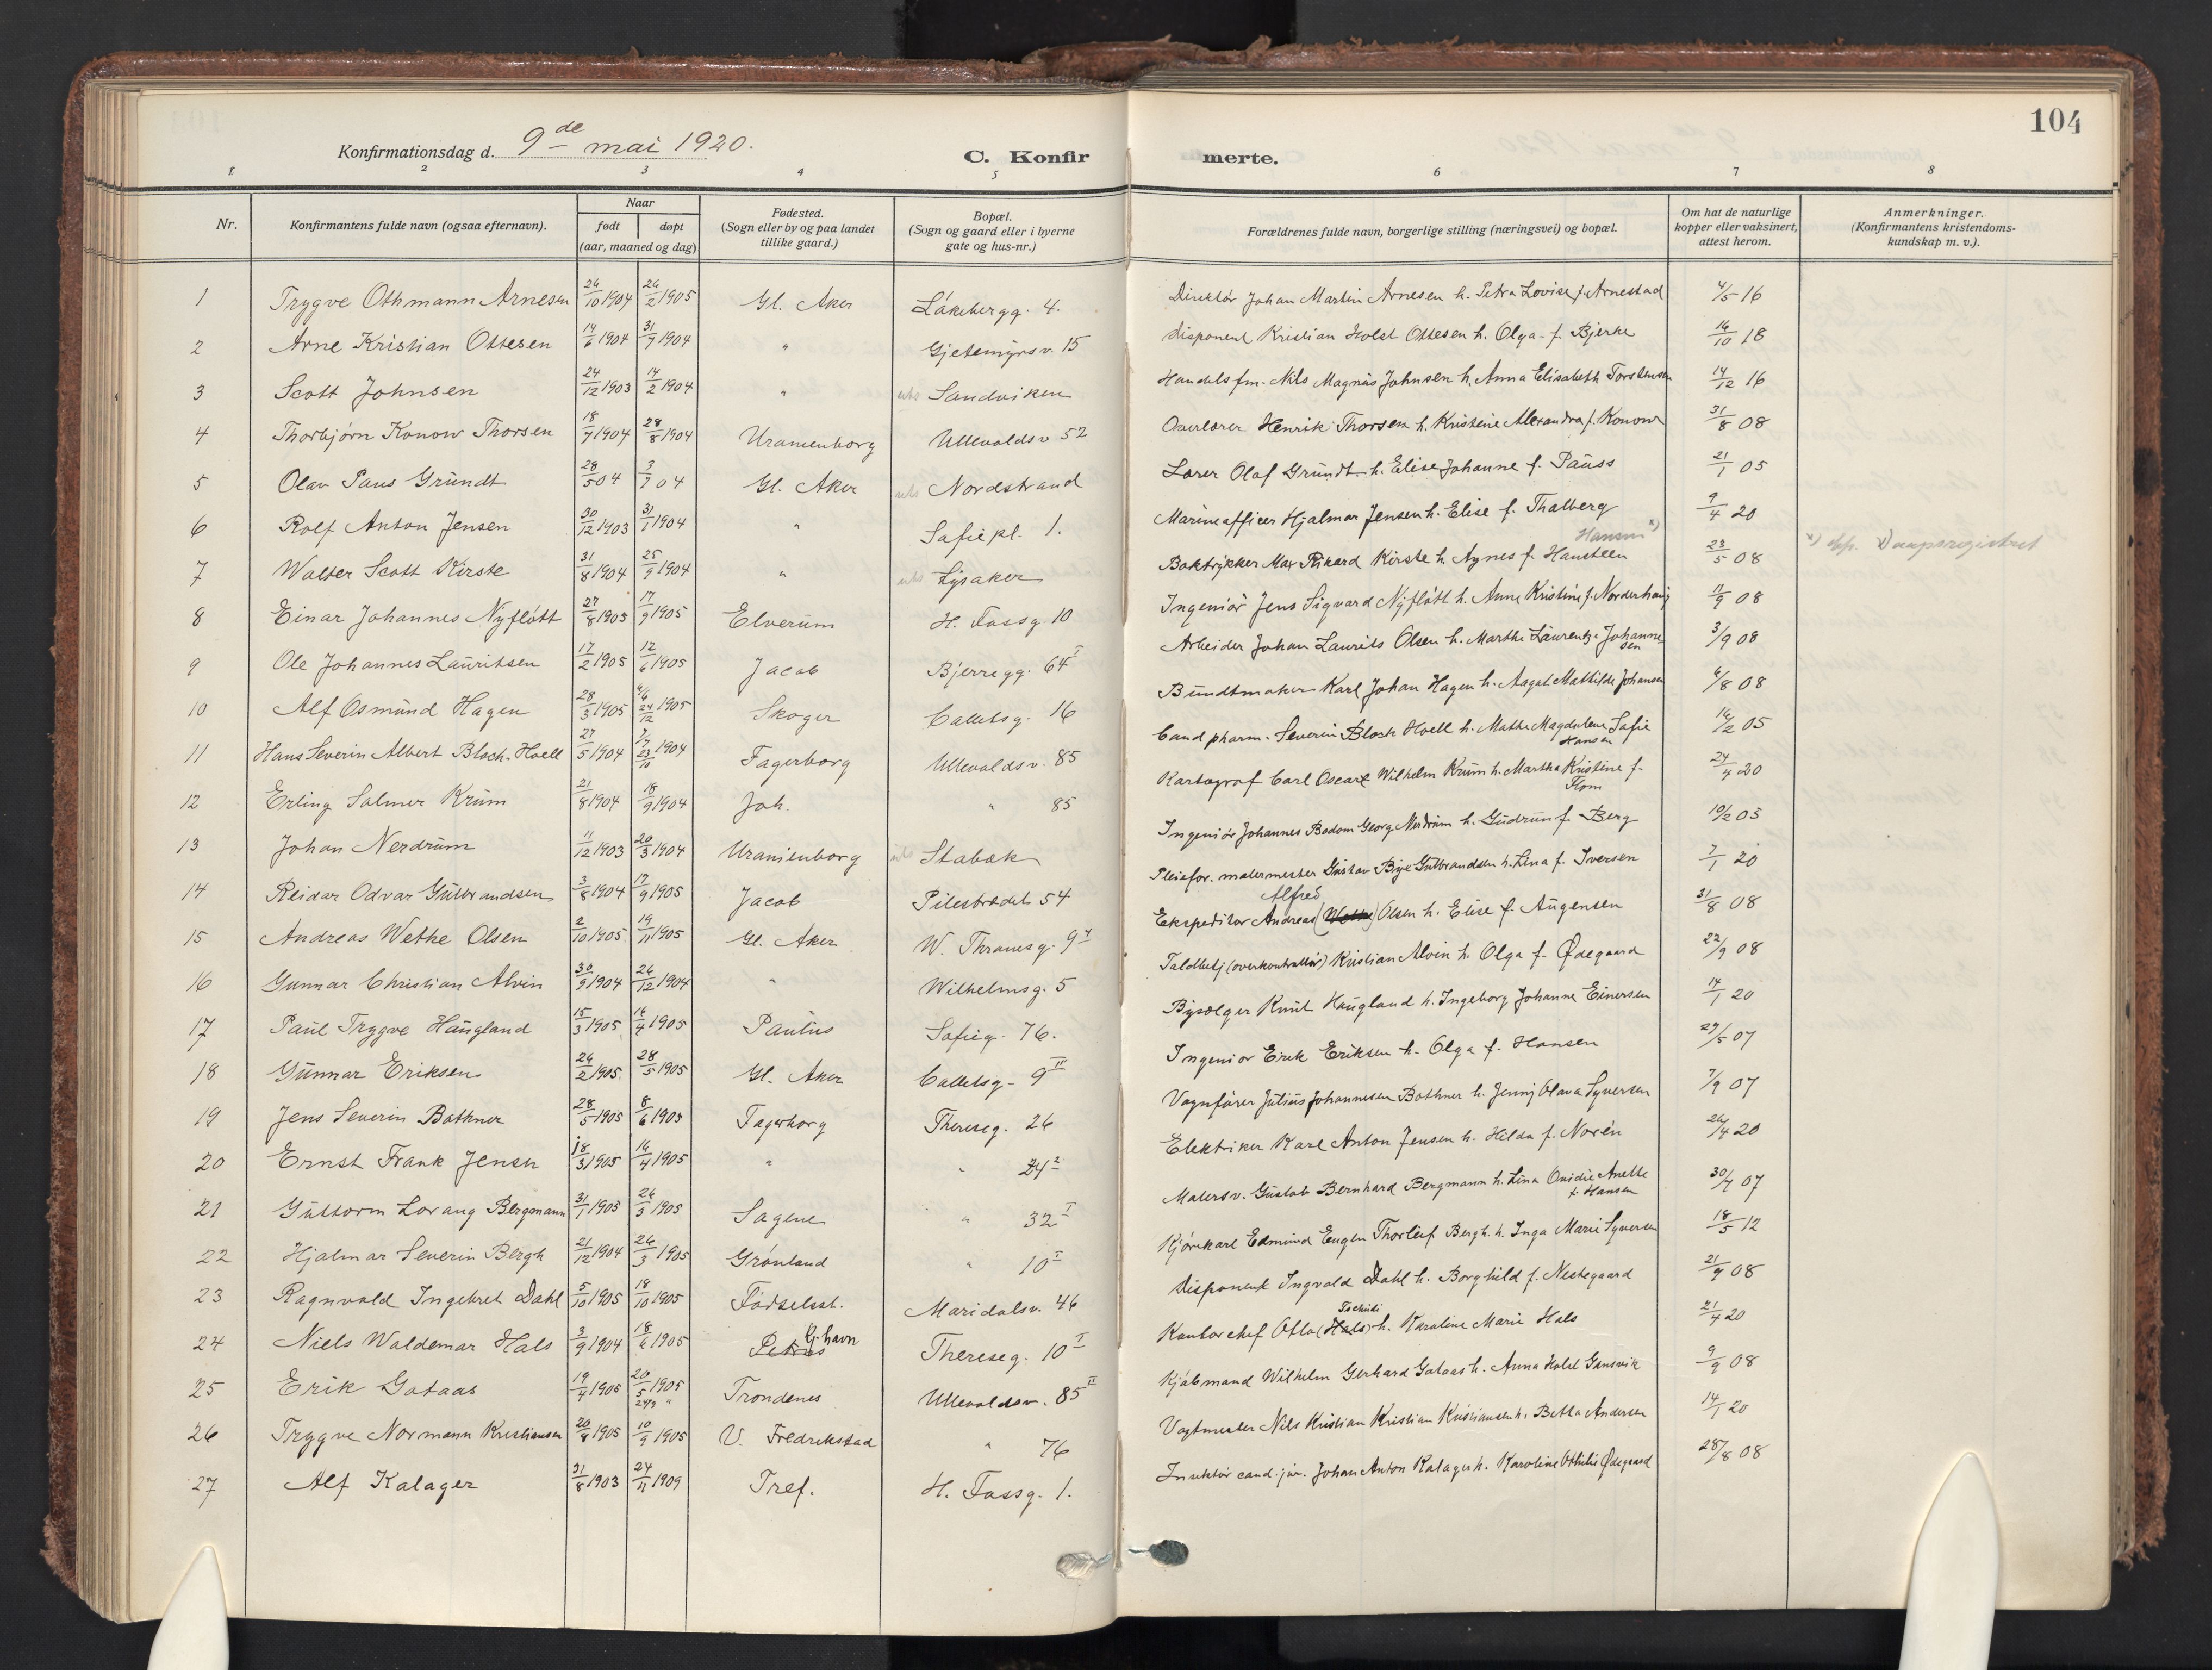 104
Konfirmationsdag d. 9de mai 1920.
C. Konfirmerte.
1 2 3 4 5 6 7 8
Nr. Konfirmantens fulde navn (ogsaa efternavn). Naar født døpt (aar, maaned og dag) Fødested. (Sogn eller by og paa landet tillike gaard.) Bopæl. (Sogn og gaard eller i byerne gate og hus-nr.) Forældrenes fulde navn, borgerlige stilling (næringsvei) og bopæl. Om hat de naturlige kopper eller vaksinert, attest herom. Anmerkninger. (Konfirmantens kristendoms-kundskap m. v.).
1 Trygve Othmann Arnesen 26/10 1904 26/2 1905 Gl. Aker Låkebergg. 4. Direktør Johan Martin Arnesen h. Petra Lovise f. Arnestad 4/5 16
2 Arne Kristian Ottesen 14/6 1904 31/7 1904 " Gjetemyrsv. 15 Disponent Kristian Holst Ottesen h. Olga f. Bjerke 16/10 18
3 Scott Johnsen 24/12 1903 14/2 1904 " Sandviken Handelsfm. Nils Magnus Johnsen h. Anna Elisabeth Torstensen 14/12 16
4 Thorbjørn Konow Thorsen 18/7 1904 28/8 1904 Uranienborg Ullevoldsv 52 Overlærer Henrik Thorsen h. Kristine Alexandra f. Konow 31/8 08
5 Olav Paus Grundt 28/5 04 3/7 04 Gl. Aker Nordstrand Lærer Olaf Grundt h. Elise Johanne f. Pauss 21/1 05
6 Rolf Anton Jensen 30/12 1903 31/1 1904 " Safiepl. 1. Marineofficer Hjalmar Jensen h. Elise f. Thalberg 9/4 20
7 Walter Scott Kirste 31/8 1904 25/9 1904 " Lysaker Boktrykker Max Rikard Kirste h. Agnes f. Hansteen Hansen x) 23/5 08 x) Daapsregistret
8 Einar Johannes Nyfløtt 27/8 1905 17/9 1905 Elverum H. Fossg. 10 Ingeniør Jens Sigvard Nyfløtt h. Anne Kristine f. Norderhaug 11/9 08
9 Ole Johannes Lauritsen 17/2 1905 12/6 1905 Jacob Bjerregg. 64 I Arbeider Johan Laurits Olsen h. Marthe Laurentze Johannesen 3/9 08
10 Alf Osmund Hagen 28/3 1905 4/6 24/12 1905 Skoger Colletsg. 16 Bundtmaker Karl Johan Hagen h. Aagot Mathilde Johansen 6/8 08
11 Hans Severin Albert Bloch-Hoell 27/5 1904 7/7 23/10 1904 Fagerborg Ullevoldsv. 85 Cand pharm. Severin Bloch Hoell h. Mathe Magdalene Sofie Hansen 16/2 05
12 Erling Salmer Krum 21/8 1904 18/9 1904 Joh. " 85 Kartograf Carl Oscar Wilhelm Krum h. Martha Kristine f. Flom 24/4 20
13 Johan Nerdrum 11/12 1903 20/3 1904 Uranienborg Stabæk Ingeniør Johannes Bodom Georg Nerdrum h. Gudrun f. Berg 10/2 05
14 Reidar Odvar Gulbrandsen 3/8 1904 17/9 1905 Jacob Pilestrædet 54 Pleiefor. malermester Gustav Bye Gulbrandsen h. Lina f. Iversen 7/1 20
15 Andreas Wethe Olsen 2/10 1905 19/11 1905 Gl. Aker W. Thranesg. 94 Ekspeditor Andreas Alfred (Wethe) Olsen h. Elise f. Augensen 31/8 08
16 Gunnar Christian Alvin 30/9 1904 26/12 1904 " Wilhelmsg. 5 Toldbetj (overkontrollør) Kristian Alvin h. Olga f. Ødegaard 22/9 08
17 Paul Trygve Haugland 15/3 1905 16/4 1905 Paulus Sofieg. 76. Bysælger Knut Haugland h. Ingeborg Johanne Einersen 14/1 20
18 Gunnar Eriksen 26/2 1905 28/5 1905 Gl. Aker Colletsg. 9 II Ingeniør Erik Eriksen h. Olga f. Hansen 29/5 07
19 Jens Severin Bothner 28/5 1905 8/6 1905 Fagerborg Thereseg. 26 Vognfører Julius Johannesen Bothner h. Jenny Olava Syversen 7/9 07
20 Ernst Frank Jensen 18/3 1905 16/4 1905 " " 24 2 Elektriker Karl Anton Jensen h. Hilda f. Norén 26/4 20
21 Guttorm Lorang Bergmann 31/1 1905 26/3 1905 Sagene " 32 I Malersv. Gustav Bernhard Bergmann h. Lina Ovidie Anette f. Hansen 30/4 07
22 Hjalmar Severin Bergh 21/12 1904 26/3 1905 Grønland " 10 I Kjørekarl Edmund Eugen Thorleif Bergh. h. Inga Marie Syversen 18/5 12
23 Ragnvald Ingebret Dahl 5/10 1905 18/10 1905 Fødselsst. Maridalsv. 46 Disponent Ingvald Dahl h. Borghild f. Nestegaard 21/9 08
24 Niels Waldemar Hals 3/9 1904 18/6 1905 Petrus Kj.havn Thereseg. 10 I Kontorchef Otto (Hals) Tschudi h. Karoline Marie Hals 21/4 20
25 Erik Gotaas 19/4 1905 20/5 1905 24/9 " Trondenes Ullevoldsv. 85 II Kjøbmand Wilhelm Gerhard Gotaas h. Anna Holst Gansvik 9/9 08
26 Trygve Normann Kristiansen 20/8 1905 10/9 1905 V. Fredrikstad " 76 Vagtmester Nils Kristian Kristian Kristiansen h. Betta Andersen 14/1 20
27 Alf Kalager 31/8 1903 24/11 1909 Tref. H. Fossg. 1. cand. jur. Johan Anton Kalager h. Karoline Othilie Ødegaard 28/8 08